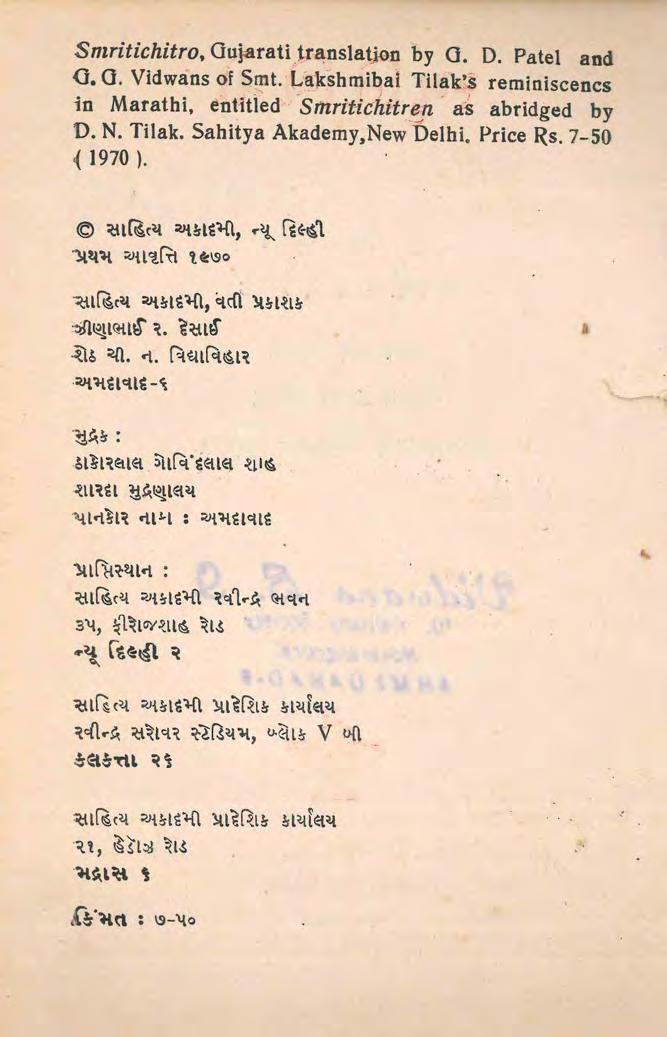 Smritichitro, Gujarati translation by G. D. Patel and
G. G. Vidwans of Smt. Lakshmibai Tilak's reminiscencs
in Marathi, entitled Smritichitren as abridged by
D. N. Tilak. Sahitya Akademy,New Delhi. Price Rs. 7-50
( 1970 ).
© સાહિત્ય અકાદમી, ન્યૂ દિલ્હી
પ્રથમ આવૃત્તિ ૧૯૭૦
સાહિત્ય અકાદમી, વતી પ્રકાશક
ઝીણાભાઈ ર. દેસાઈ
શેઠ ચી. ન. વિદ્યાવિહાર
અમદાવાદ-૬
મુદ્રક :
ઠાકોરલાલ ગોવિંદલાલ શાહ
શારદા મુદ્રણાલય
પાનકોર નાકા : અમદાવાદ
પ્રાપ્તિસ્થાન :
સાહિત્ય અકાદમી રવીન્દ્ર ભવન
૩૫, ફીરોજશાહ રોડ
ન્યૂ દિલ્હી ૨
સાહિત્ય અકાદમી પ્રાદેશિક કાર્યાલય
રવીન્દ્ર સરોવર સ્ટેડિયમ, બ્લોક V બી
કલકત્તા ૨૬
સાહિત્ય અકાદમી પ્રાદેશિક કાર્યાલય
૨૧, હેડોઝ રોડ
મદ્રાસ ૬
કિંમત : ૭-૫૦